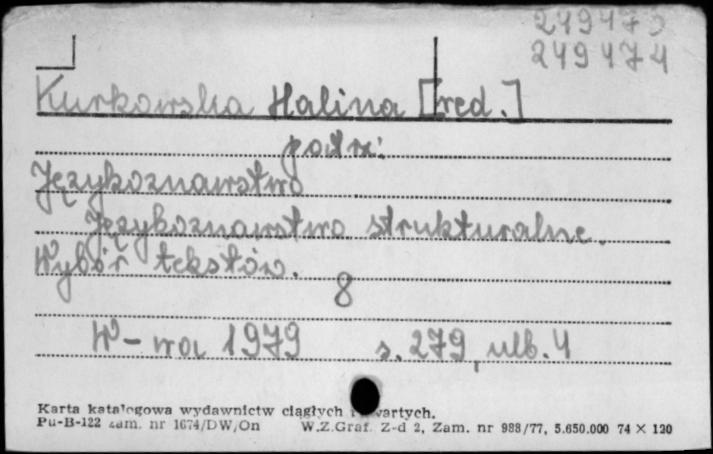 249473
249474
Kurkowska Halina [red.]
patrz:
Językoznawstwo
Językoznawstwo strukturalne.
Wybór tekstów.
8
W-wa 1979 s. 279, nlb. 4
Karta katalogowa wydawnictw ciągłych i zwartych.
Pu-B-122 zam. nr 1674/DW/On W.Z.Graf. Z-d 2, Zam. nr 988/77, 5.650.000 74 X 120